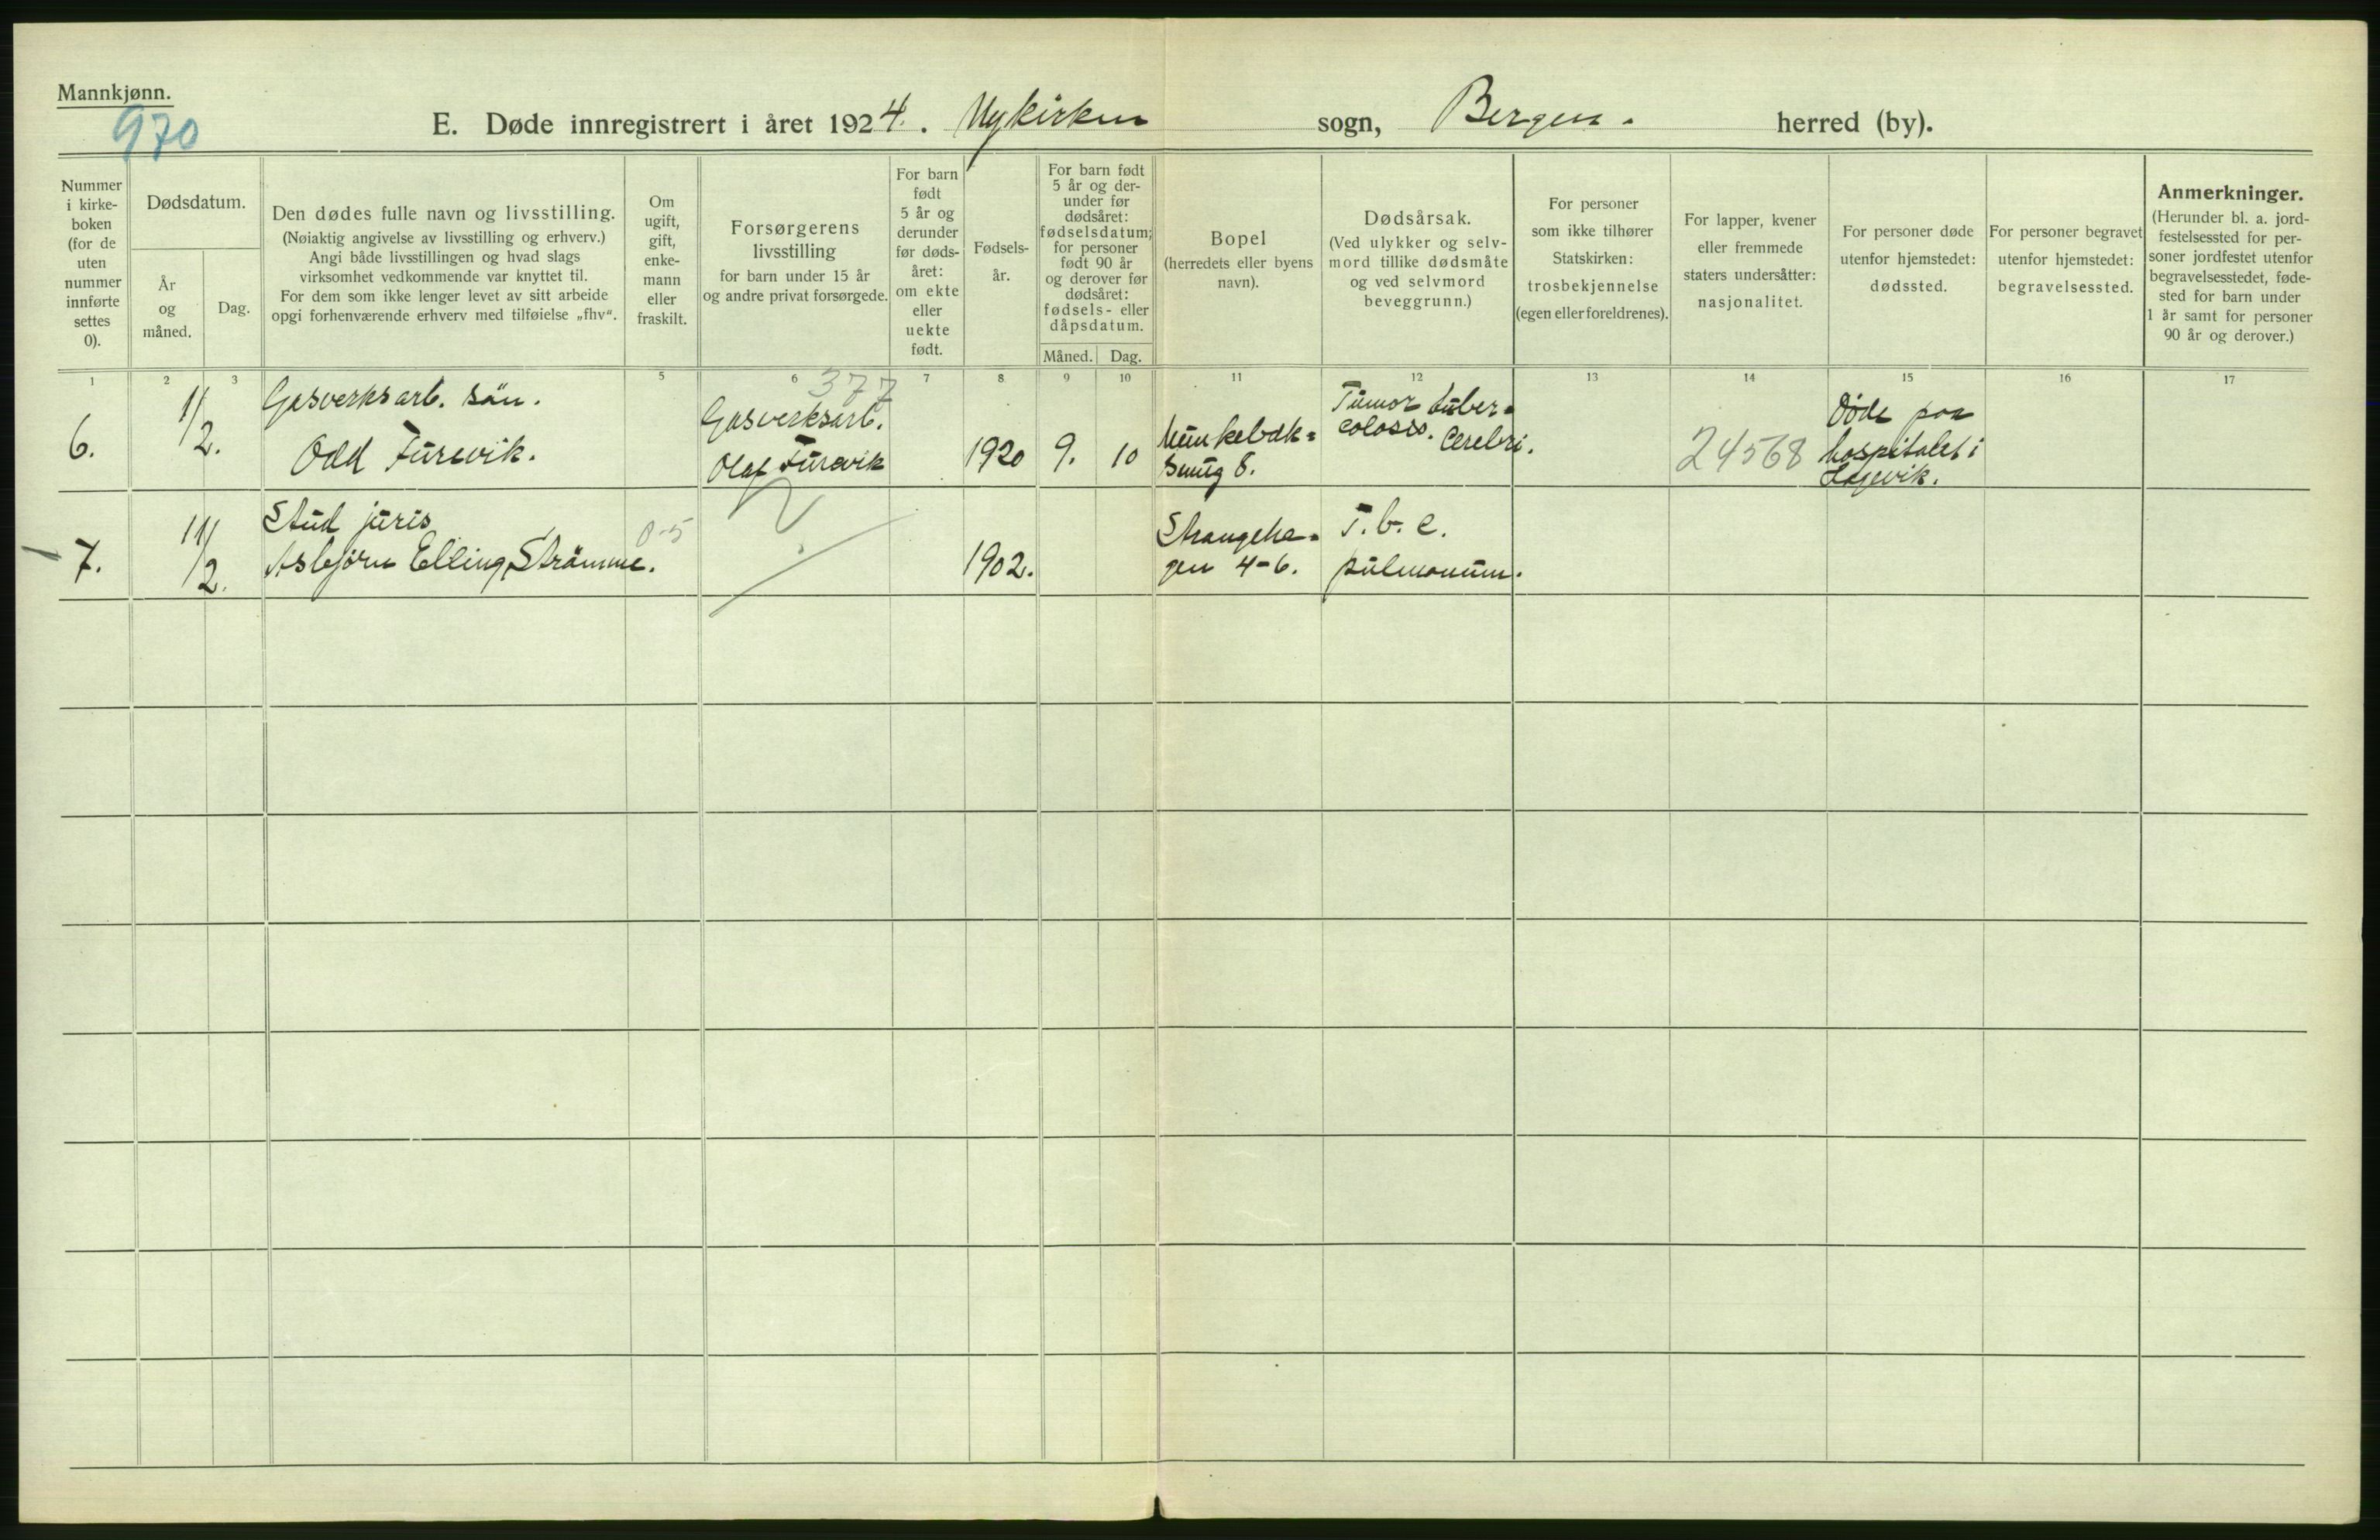 Mannkjønn.
970
E. Døde innregistrert i året 1924. Nykirken sogn, Bergen. herred (by).
Nummer
i kirke-
boken
(for de
uten
nummer
innførte
settes
0).
Dødsdatum.
År
og
måned.
Dag.
Den dødes fulle navn og livsstilling.
(Nøiaktig angivelse av livsstilling og erhverv.)
Angi både livsstillingen og hvad slags
virksomhet vedkommende var knyttet til.
For dem som ikke lenger levet av sitt arbeide
opgi forhenværende erhverv med tilføielse „fhv“.
Om
ugift,
gift,
enke-
mann
eller
fraskilt.
Forsørgerens
livsstilling
for barn under 15 år
og andre privat forsørgede.
For barn
født
5 år og
derunder
før døds-
året:
om ekte
eller
uekte
født.
Fødsels-
år.
For barn født
5 år og der-
under før
dødsåret:
fødselsdatum;
for personer
født 90 år
og derover før
dødsåret:
fødsels- eller
dåpsdatum.
Måned. Dag.
Bopel
(herredets eller byens
navn).
Dødsårsak.
(Ved ulykker og selv-
mord tillike dødsmåte
og ved selvmord
beveggrunn.)
For personer
som ikke tilhører
Statskirken:
trosbekjennelse
(egen eller foreldrenes).
For lapper, kvener
eller fremmede
staters undersåtter:
nasjonalitet.
For personer døde
utenfor hjemstedet:
dødssted.
For personer begravet
utenfor hjemstedet:
begravelsessted.
Anmerkninger.
(Herunder bl. a. jord-
festelsessted for per-
soner jordfestet utenfor
begravelsesstedet, føde-
sted for barn under
1 år samt for personer
90 år og derover.)
1 2 3 5 6 7 8 9 10 11 12 13 14 15 16 17
6.
1/2.
Gasverksarb. sön.
Odd Furevik.
377
Gasverksarb.
Olaf Furevik
1920 9. 10
Munkebdk=
smug 8.
Tumor tuber=
colosis. Cerebri.
24568
Döde paa
hospitalet i
7.
11/2.
Stud juris
Asbjörn Elling Strömme.
0-5
1902.
Strangeha=
gen 4-6.
T.b.c.
pulmonum.